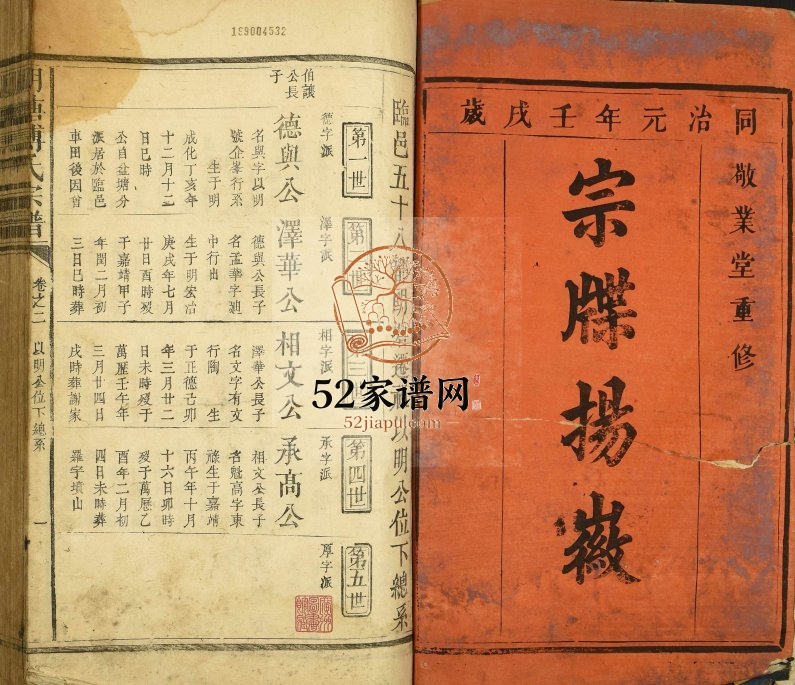 同治元年壬戌歲
敬業堂重修
宗牒揚徽
199004532
臨邑五十八
以明公位下總系
第一世
第四世
第五世
德字派
澤字派
相字派
承字派
厚字派
伯讓
公長
子
德與公
澤華公
相文公
承高公
名與字以明
號企峯行系
生于明
成化丁亥年
十二月十二
日巳時
公自盆塘分
派居於臨邑
車田後因首
德與公長子
名孟華字廸
中行出
生于明宏治
庚戌年七月
廿日酉時歿
于嘉靖甲子
年閏二月初
三日巳時葬
澤華公長子
名文字有文
行陶 生
于正德己卯
年三月廿二
日未時歿于
萬歷壬午年
三月廿四日
戌時葬謝家
相文公長子
名魁高字東
祿生于嘉靖
丙午年十月
十六日卯時
歿于萬歷乙
酉年二月初
四日未時葬
羅字墳山
氏宗譜
卷之二
以明公位下總系
一
52家谱网
52jiapu.com